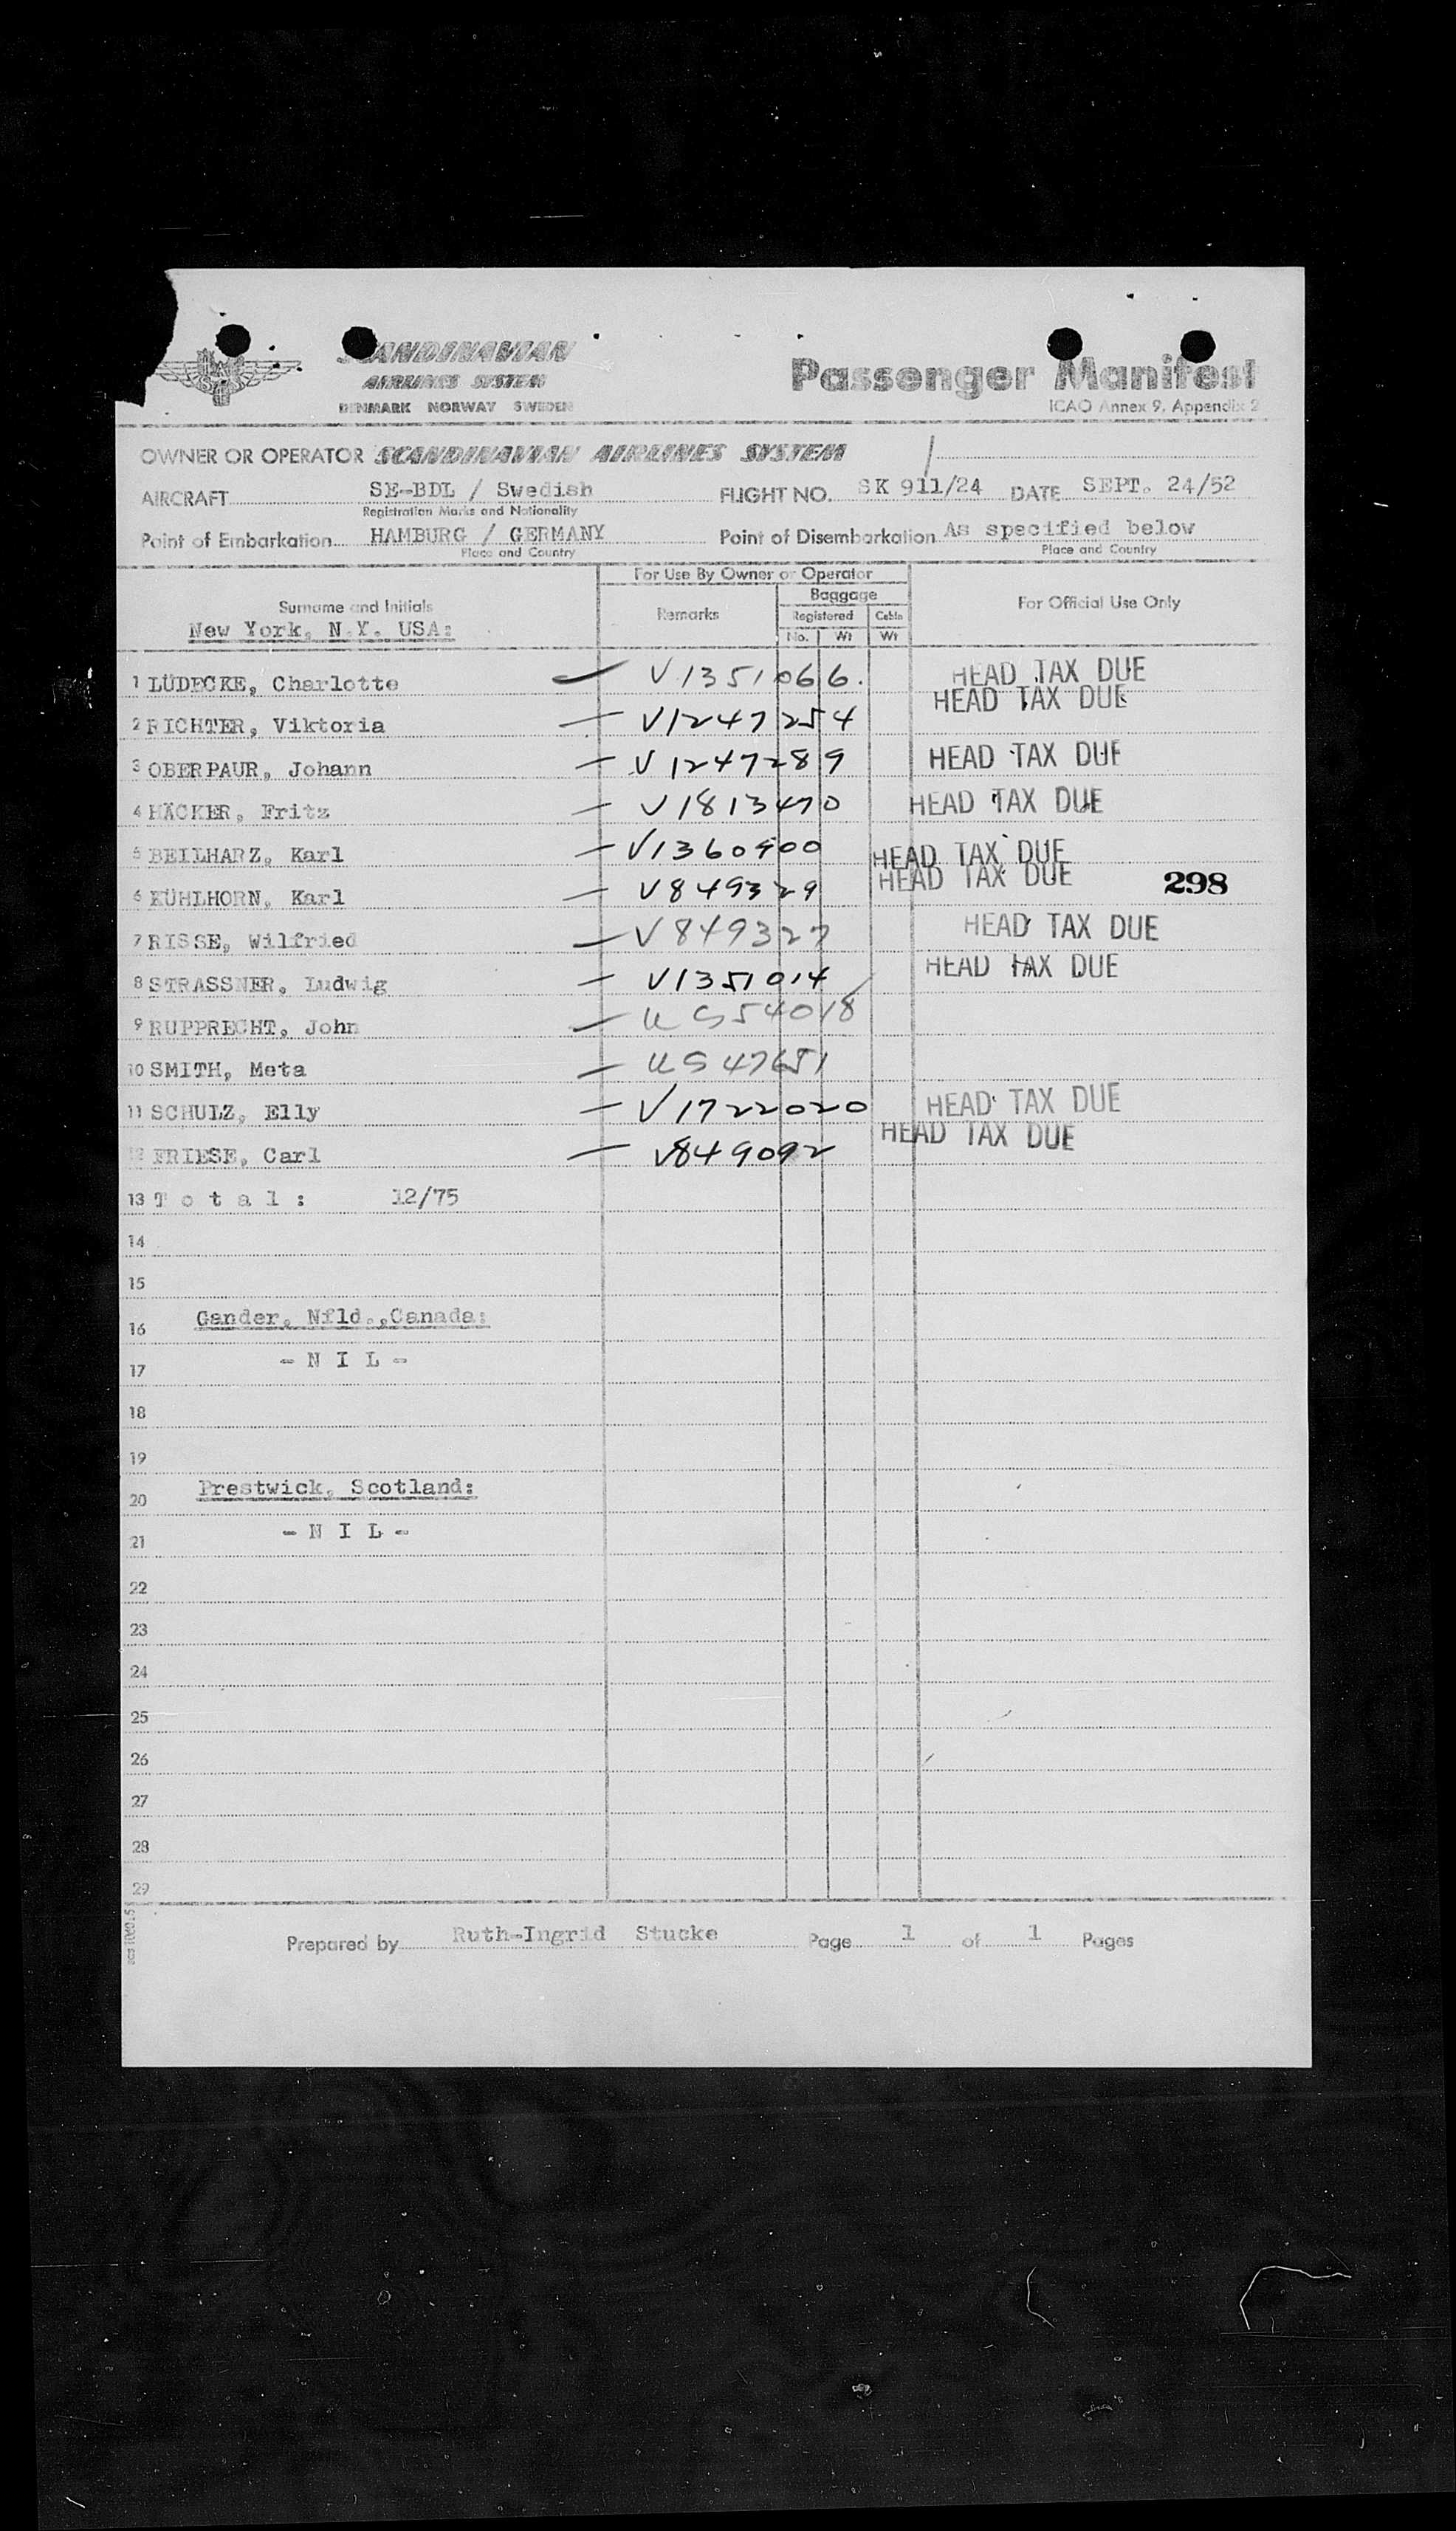 SCANDINAVIAN
AIRLINES SYSTEM
DENMARK NORWAY SWEDEN
Passenger Manifest
ICAO Annex 9, Appendix 2
OWNER OR OPERATOR SCANDINAVIAN AIRLINES SYSTEM
AIRCRAFT SE-BDL / Swedish FLIGHT NO. SK 911/24 DATE SEPT. 24/52
Registration Marks and Nationality
Point of Embarkation HAMBURG / GERMANY Point of Disembarkation As specified below
Place and Country Place and Country
For Use By Owner or Operator
Baggage
Surname and Initials Remarks Registered Cabin For Official Use Only
New York, N.Y. USA: No. Wt Wt
1 LÜDECKE, Charlotte V1351066. HEAD TAX DUE
HEAD TAX DUE
2 RICHTER, Viktoria V1247254
3 OBERPAUR, Johann V1247289 HEAD TAX DUE
4 HÄCKER, Fritz V1813470 HEAD TAX DUE
5 BEILHARZ, Karl V1360900 HEAD TAX DUE
6 KÜHLHORN, Karl V849329 HEAD TAX DUE 298
7 RISSE, Wilfried V849327 HEAD TAX DUE
8 STRASSNER, Ludwig V1351014 HEAD TAX DUE
9 RUPPRECHT, John US54018
10 SMITH, Meta US47651
11 SCHULZ, Elly V1722020 HEAD TAX DUE
12 FRIESE, Carl V849092 HEAD TAX DUE
13 T o t a l : 12/75
14
15
16 Gander, Nfld.,Canada:
17 - N I L -
18
19
20 Prestwick, Scotland:
21 - N I L -
22
23
24
25
26
27
28
29
Prepared by Ruth-Ingrid Stucke Page 1 of 1 Pages